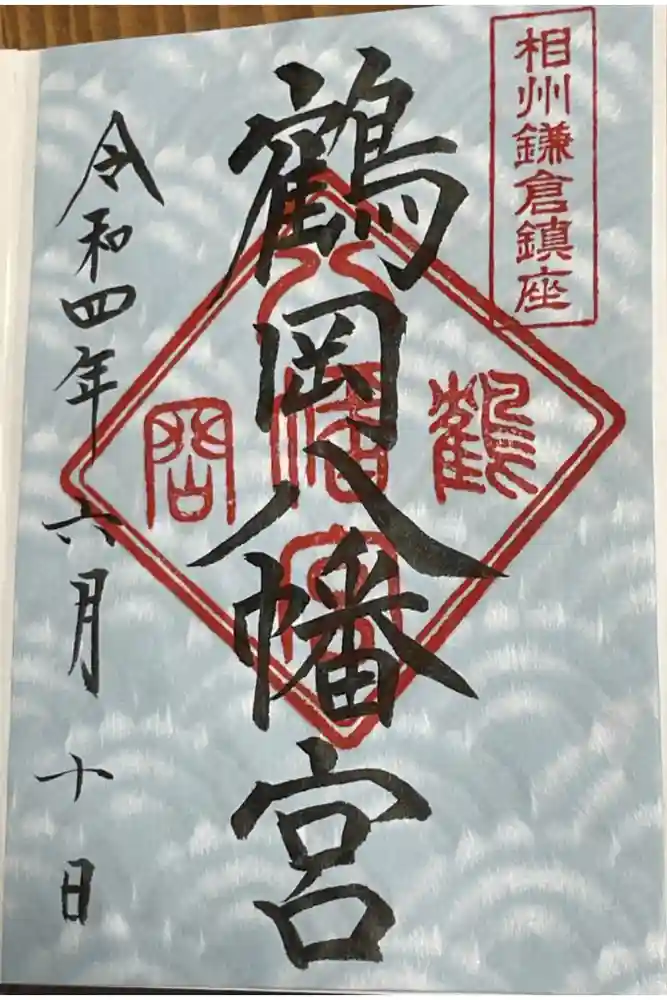 相州鎌倉鎮座
鶴岡八幡宮
鶴
岡
八
幡
宮
令和四年六月十日